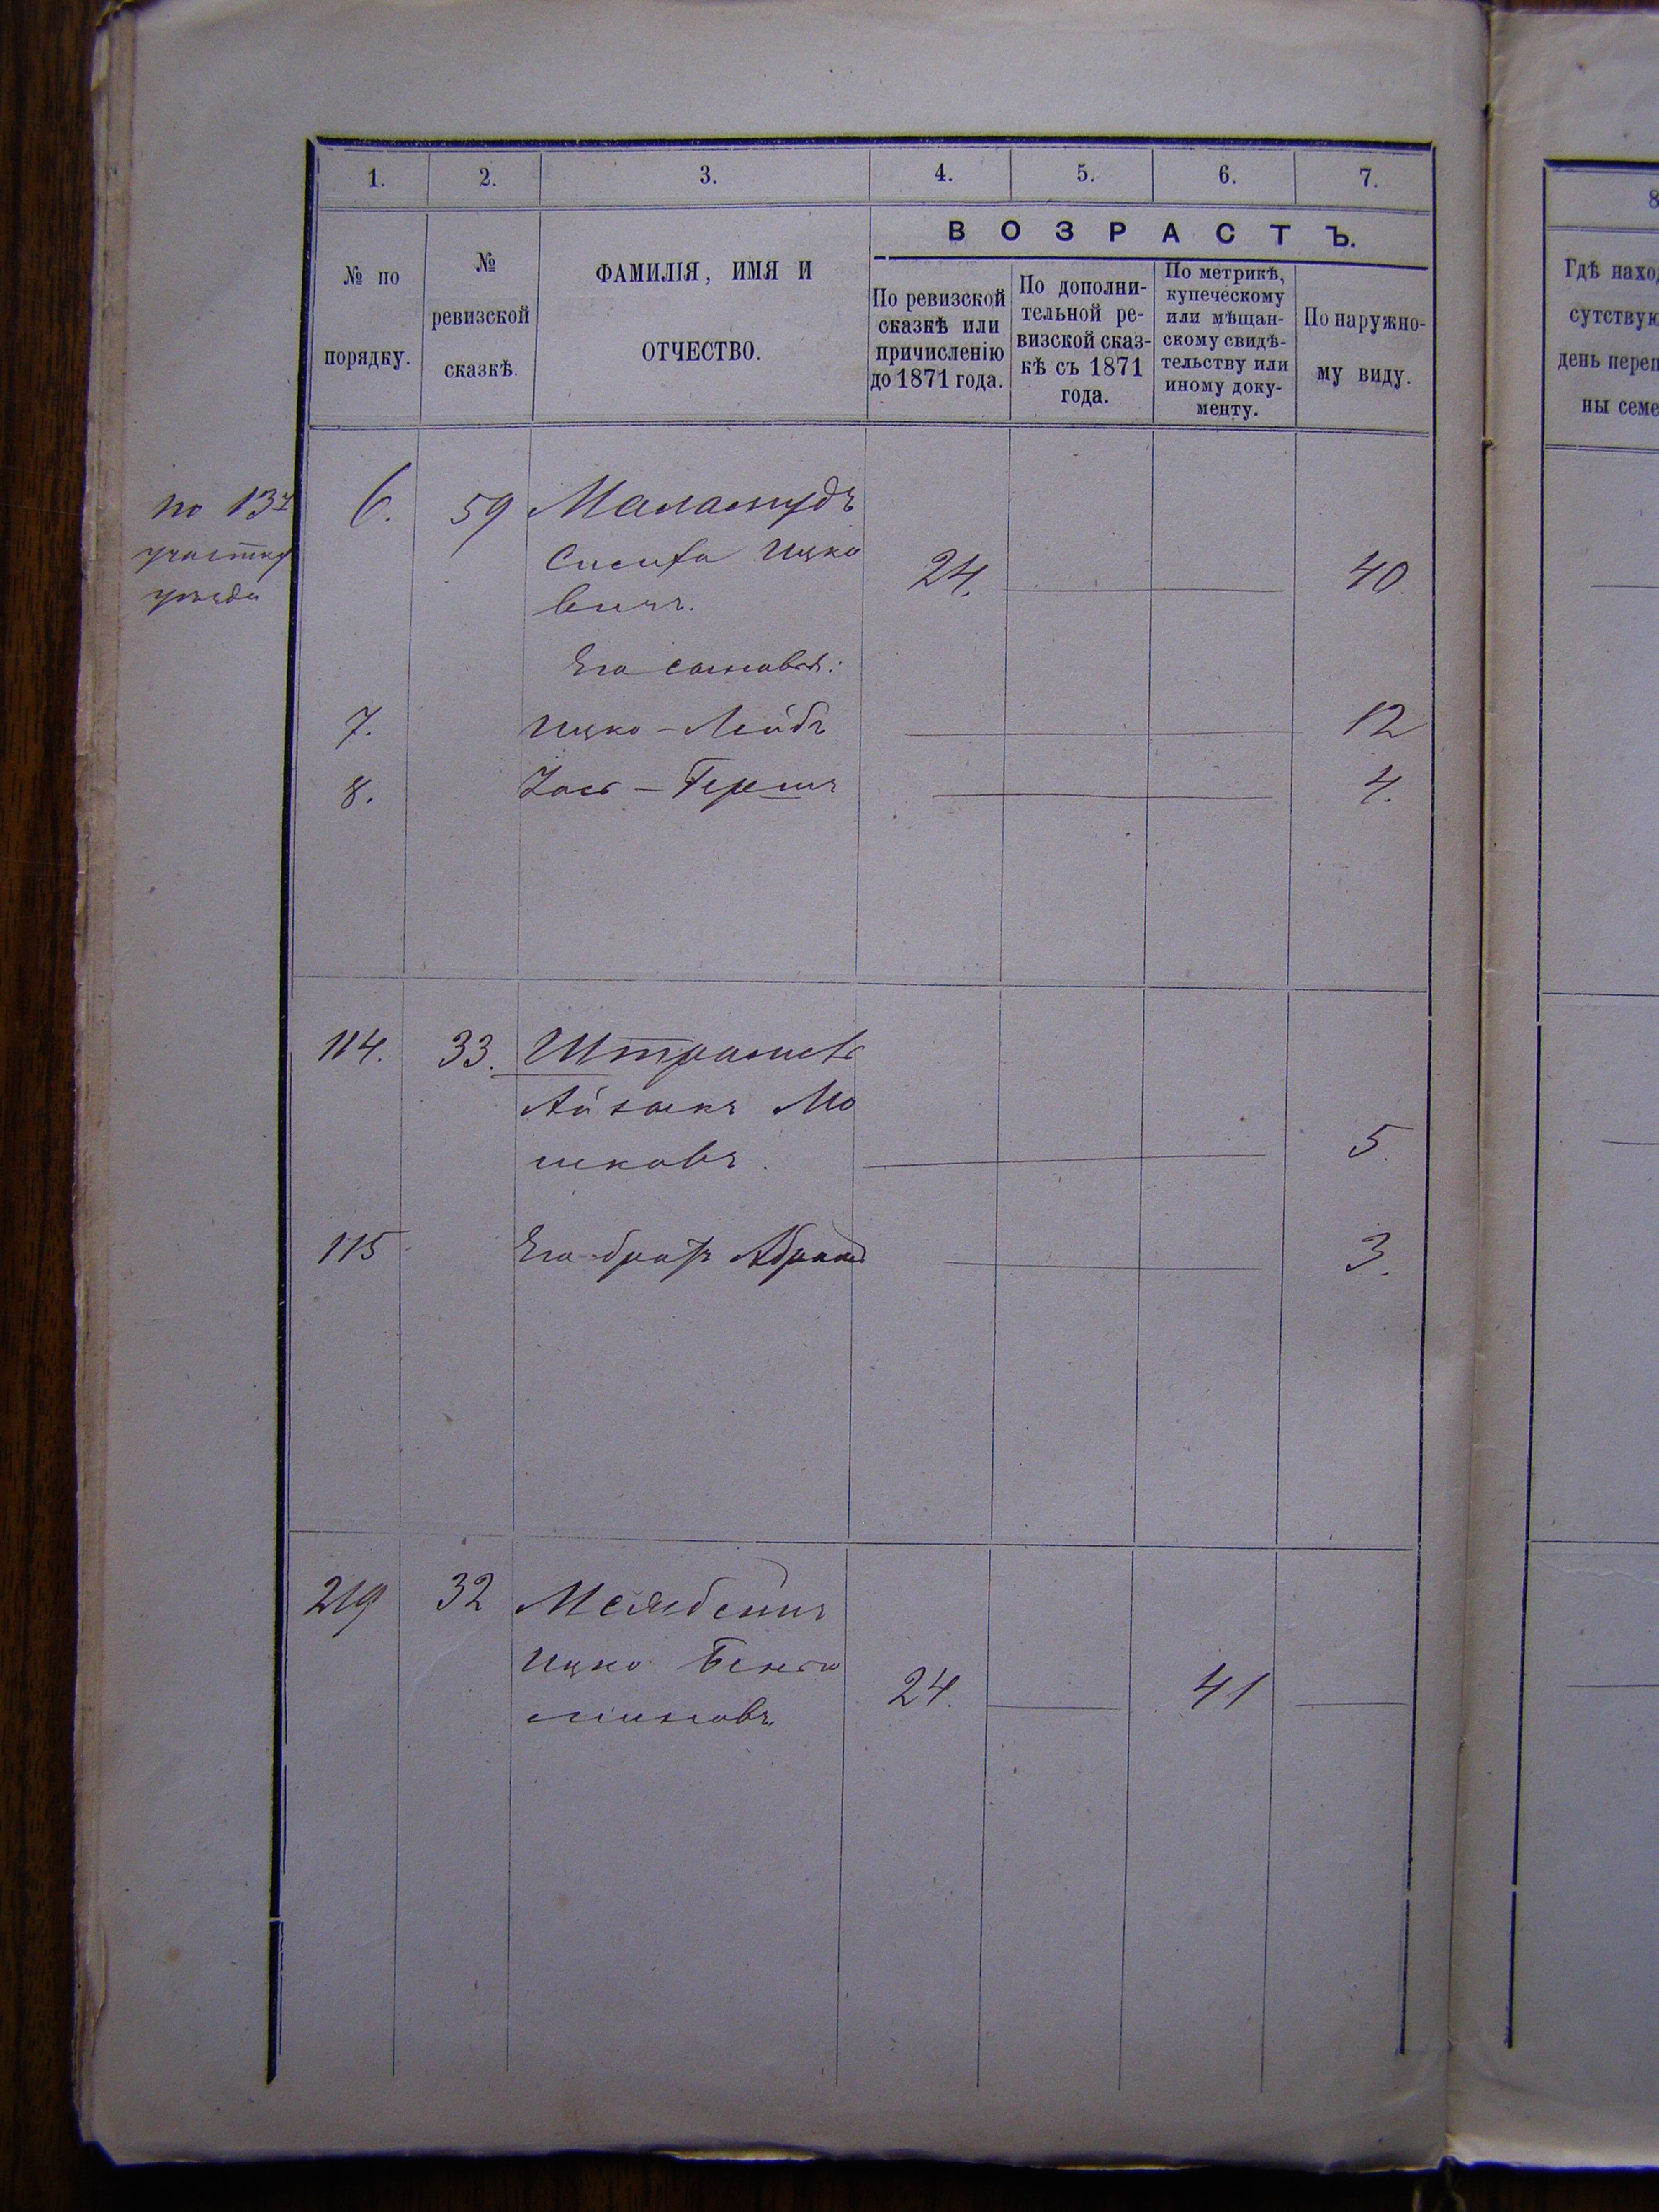 1. 2. 3. 4. 5. 6. 7.
ВОЗРАСТЪ.
№ по
порядку.
№
ревизской
сказкѣ.
ФАМИЛІЯ, ИМЯ И
ОТЧЕСТВО.
По ревизской
сказкѣ или
причисленію
до 1871 года.
По дополни-
тельной ре-
визской сказ-
кѣ съ 1871
года.
По метрикѣ,
купеческому
или мѣщан-
скому свидѣ-
тельству или
иному доку-
менту.
По наружно-
му виду.
по
участку
уѣзда
6. 59 Маламудъ
Ицко
вичъ. 24. 40
Его сыновья:
7. Ицко-Лейбъ 12
8. Іось-Гершъ 4.
114. 33.
Айзикъ Мо
шковъ. 5.
115 Его братъ Абрамъ 3.
219 32
Ицко Бенья
миновъ 24. 41
8
Гдѣ нахо
сутствую
день переп
ны семе